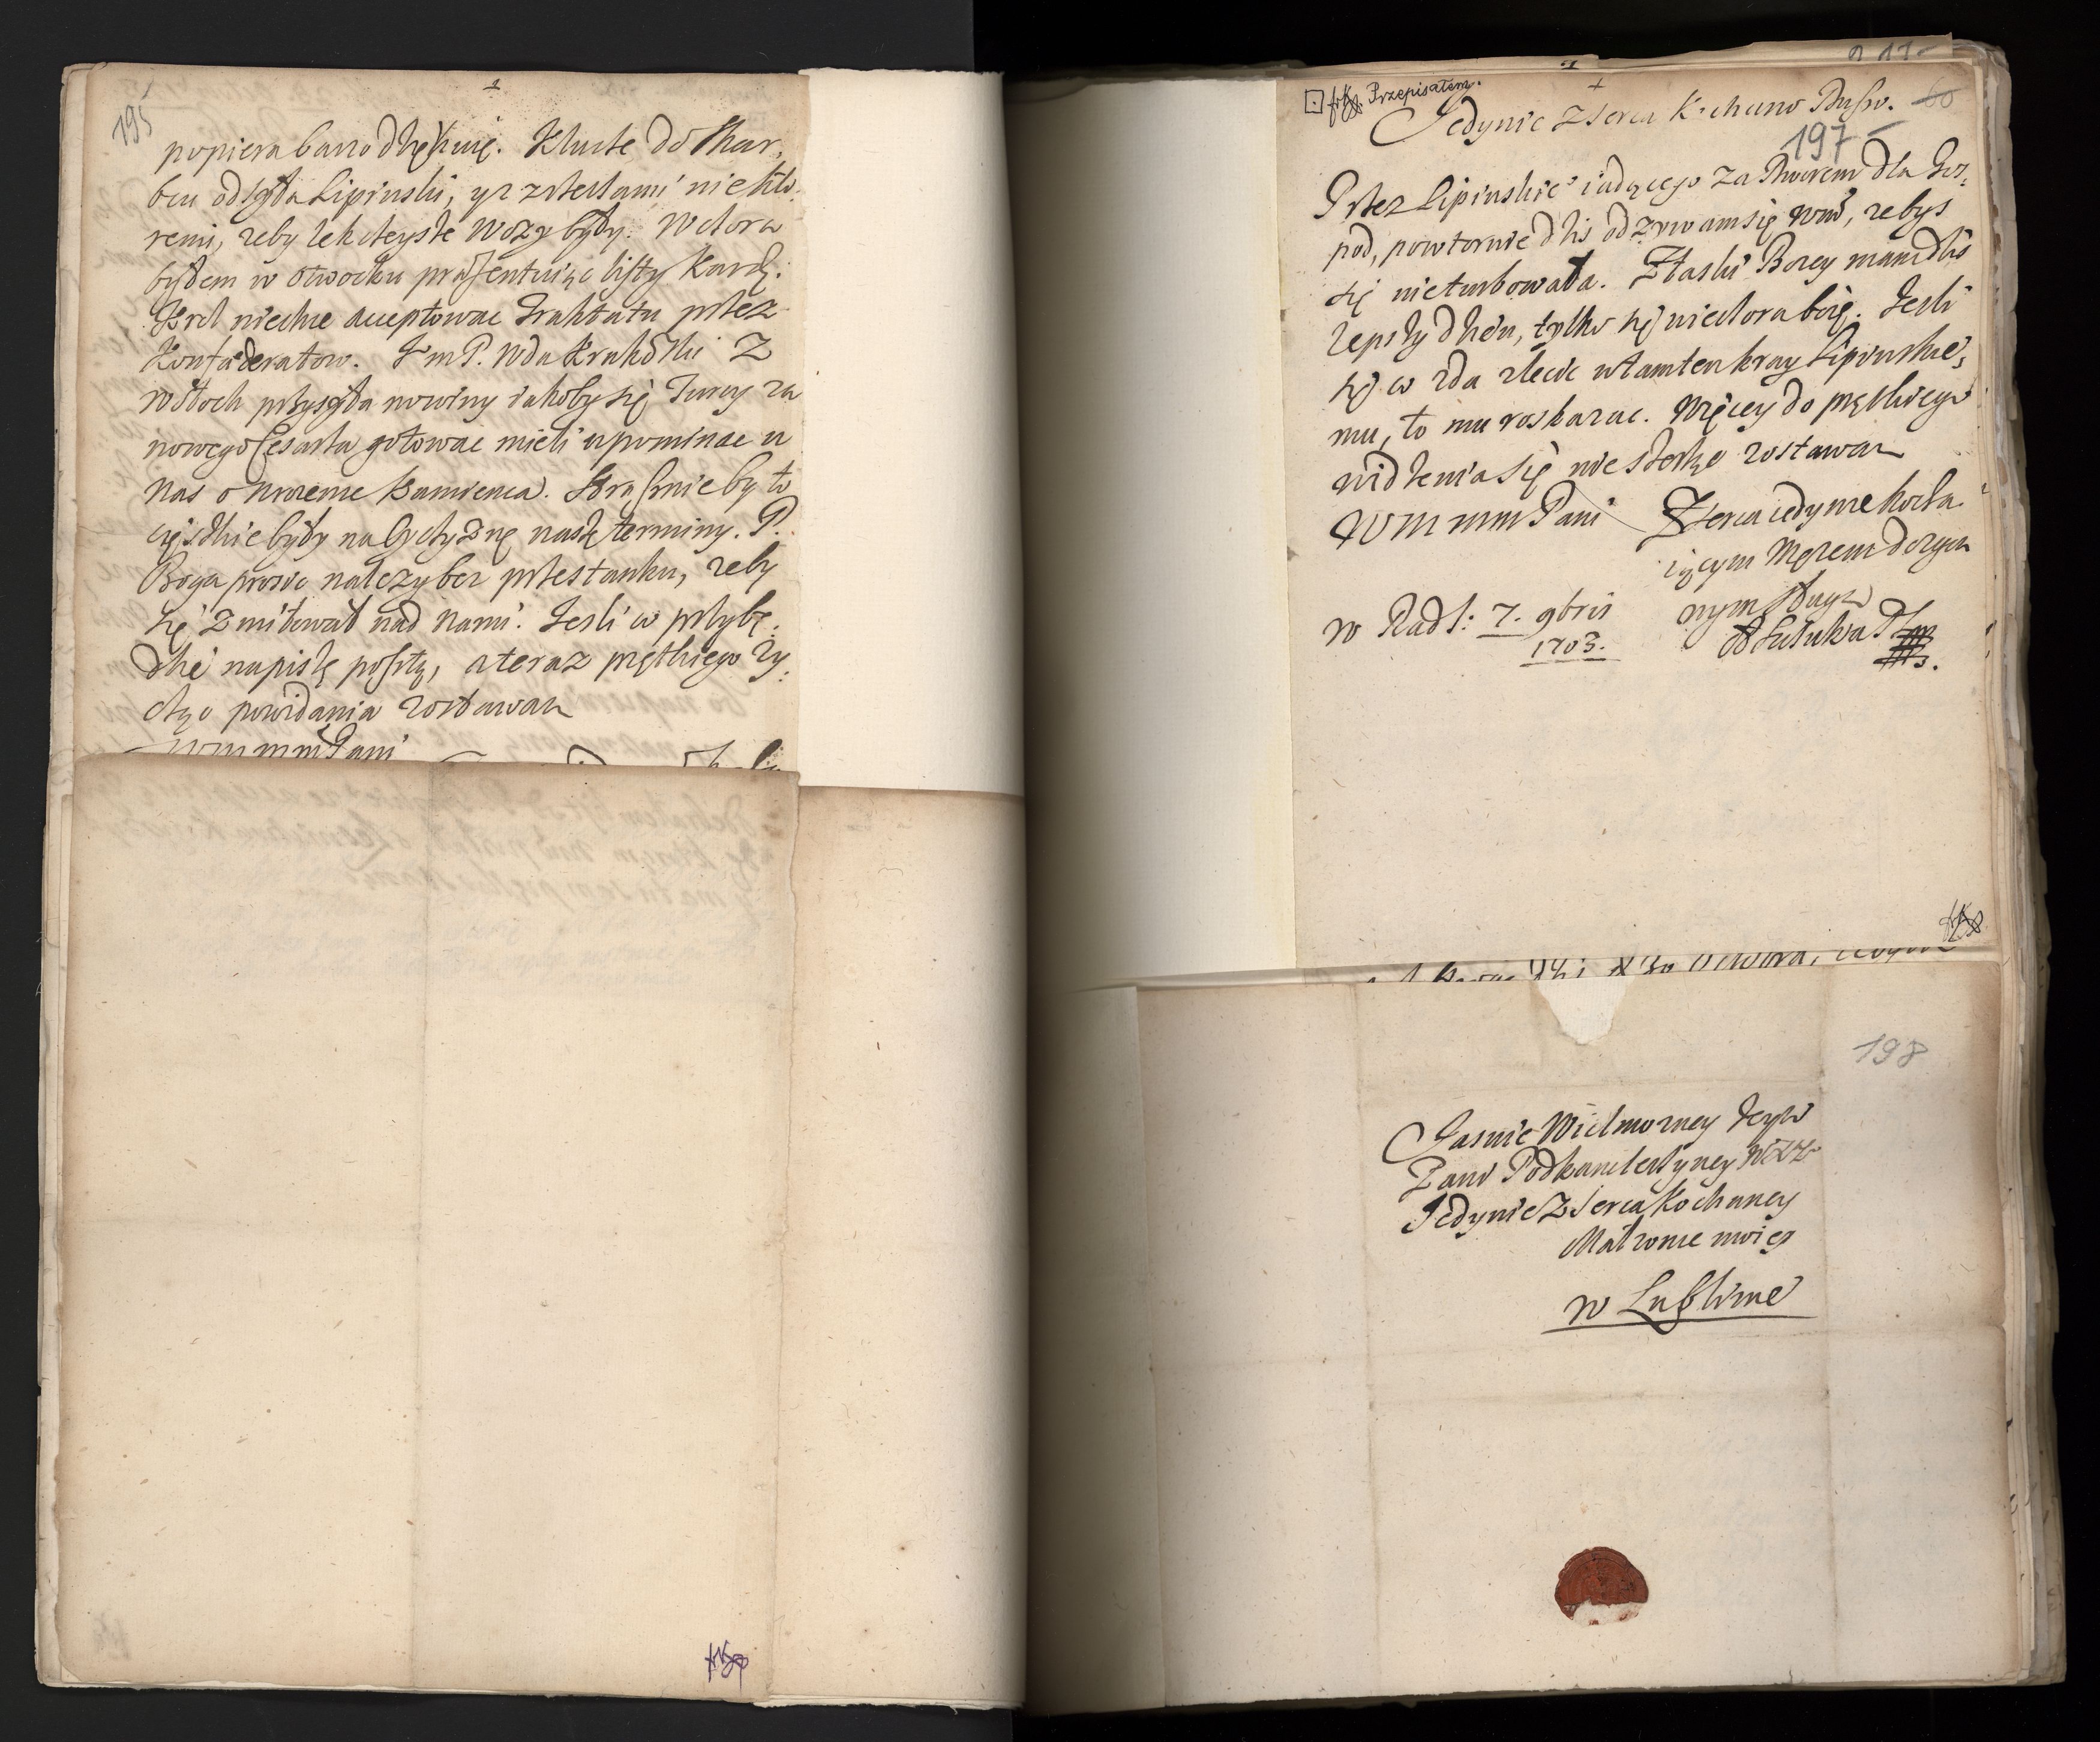 195
popiera barzo dzękuię. Klucze do skar,
bcu odsyła Lipinski, yz z rzeczami niektó,
remi, zeby lekcieysze wozy były. Wctora
byłem w Otwocku prezentuiąc listy Kard:
Krol niechce acceptowac Traktatu przez
Konfæderatow. JmP. Wda Krakoski z
Włoch przysyła nowiny iakoby się Turcy za
nowego Cesarza gotowac mieli upominac u
nas o
Kamienca. Strasznie by to
cięszkie były na Oyczyznę naszę terminy. P.
Boga prosic nalezy bez przestanku, zeby
się zmiłował nad nami. Jesli co przybę,
dzie napiszę posztą, a teraz prętkiego zy,
cząc powidania zostawam
WMMMPani
Przepisałem.
Jedynie z serca Kochane Duszo.
60
197
Przez Lipinskie° iadącego za Dworem dla Gos,
pod, powtornie dzis odzywam się WM, zebys
się nieturbowała. Z łaski Bozey mam dzis
lepszy dzien, tylko się niecto ra boię. Jesli
się co zda zlecic w tamten kray Lipinskie,
mu, to mu roskazac. Więcey do prętkiego
widzenia się nie szerząc zostawam
WMMMPani Z serca iedynie kocha
iącym Męzem dozgon
nym sługą
w Radz: 7. 9bris
1703.
198
Jasnie Wielmozney Jeym
Pani Podkanclerzyney WXL
Jedynie z serca Kochaney
Małzonce moiey
w Lublinie